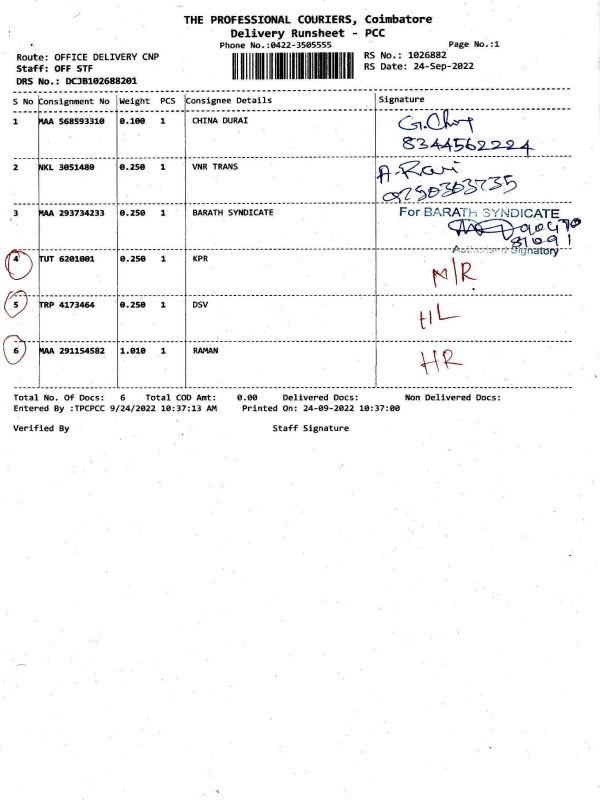 THE PROFESSIONAL COURIERS, Coimbatore
Delivery Runsheet - PCC
Phone No.:0422-3505555
Page No.:1
Route: OFFICE DELIVERY CNP
RS No.: 1026882
Staff: OFF STF
RS Date: 24-Sep-2022
DRS No.: DCJB102688201
S No Consignment No Weight PCS Consignee Details Signature
1 MAA 568593310 0.100 1 CHINA DURAI
8344562224
2 NKL 3051480 0.250 1 VNR TRANS A. Ravi
3 MAA 293734233 0.250 1 BARATH SYNDICATE For BARATH SYNDICATE
Authorised Signatory
4 TUT 6201001 0.250 1 KPR N/R
5 TRP 4173464 0.250 1 DSV HL
6 MAA 291154582 1.010 1 RAMAN HR
Total No. Of Docs: 6 Total COD Amt: 0.00 Delivered Docs: Non Delivered Docs:
Entered By :TPCPCC 9/24/2022 10:37:13 AM Printed On: 24-09-2022 10:37:00
Verified By Staff Signature